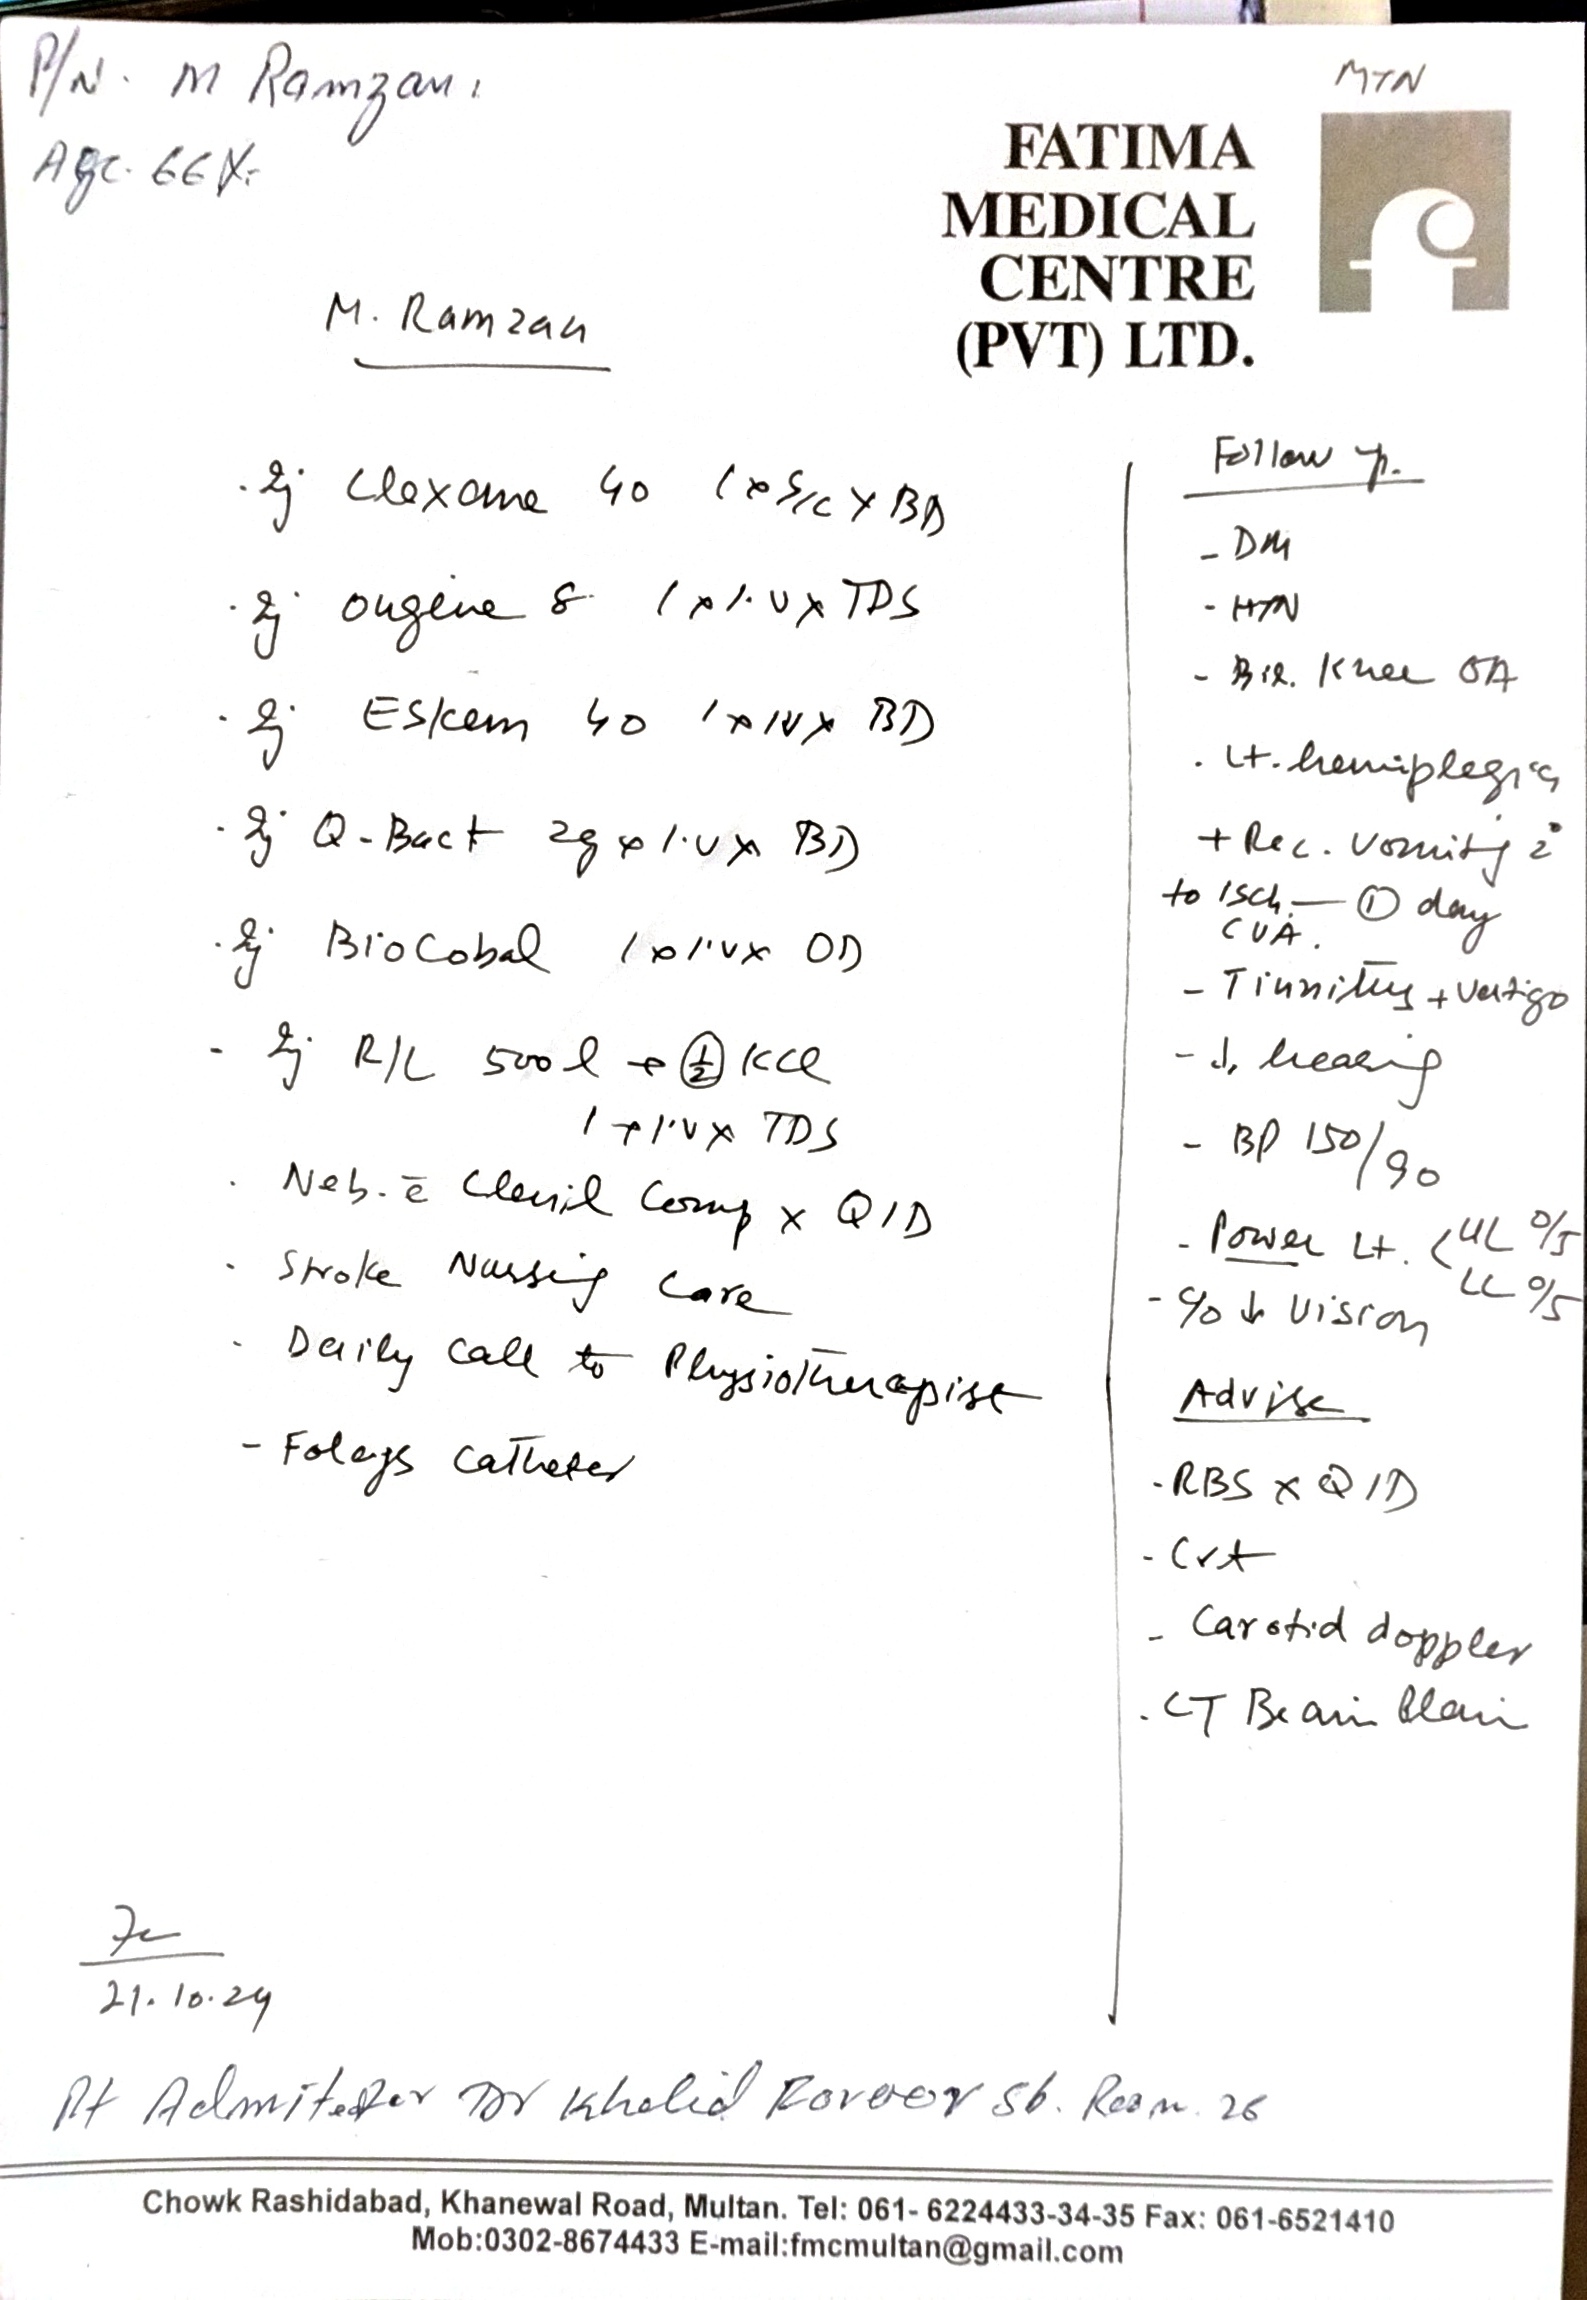 P/N. M Ramzan.
Age. 66 Y.
MTN
FATIMA
MEDICAL
CENTRE
(PVT) LTD.
M. Ramzan
. Inj Clexane 40 1 x S/C x BD
. Inj 8 1 x I.V x TDS
. Inj ESkem 40 1 x IV x BD
. Inj Q-Bact 2g x I.V x BD
. Inj BioCobal 1 x I.V x OD
- Inj R/L 500 l + ½ KCl
1 x I.V x TDS
. Neb. c̄ Clenil Comp x QID
. Stroke Nursing Care
. Daily Call to Physiotherapist
- Foleys Catheter
Follow up.
- DM
- HTN
- Bil. Knee OA
. Lt. hemiplegia
+ Rec. vomiting 2°
to Isch. — ① day
CVA.
- Tinnitus + Vertigo
- ↓ hearing
- BP 150/90
- Power Lt. < UL 0/5
LL 0/5
- c/o ↓ Vision
Advise
- RBS x QID
- Carotid doppler
. CT Brain Plain
21.10.24
Pt Admited for Dr Khalid Sb. Room. 26
Chowk Rashidabad, Khanewal Road, Multan. Tel: 061- 6224433-34-35 Fax: 061-6521410
Mob:0302-8674433 E-mail:fmcmultan@gmail.com